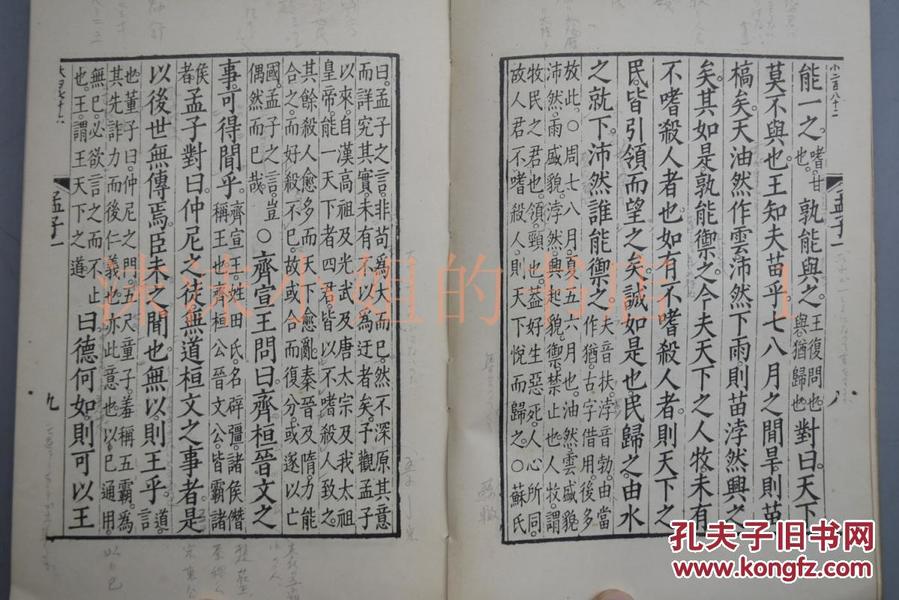 小二百八十二
能一之。嗜甘也。孰能與之。王復問也。與猶歸也。對曰。天下
莫不與也。王知夫苗乎。七八月之間旱。則苗
槁矣。天油然作雲。沛然下雨。則苗浡然興之
矣。其如是。孰能禦之。今夫天下之人牧。未有
不嗜殺人者也。如有不嗜殺人者。則天下之
民。皆引領而望之矣。誠如是也。民歸之。由水
之就下。沛然誰能禦之。夫音扶。浡音勃。由當作猶。古字借用。後多
放此。○周七八月。夏五六月也。油然雲盛貌
沛然雨盛貌。浡然興起貌。禦禁止也。人牧謂
牧民之君也。領頸也。蓋好生惡死。人心所同。
故人君不嗜殺人。則天下悅而歸之。○蘇氏
孟子一
八
曰。孟子之言。非苟為大而已。然不深原其意
而詳究其實。未有不以為迂者矣。予觀孟子
以來。自漢高祖及光武及唐太宗及我太祖
皇帝。能一天下者四君。皆以不嗜殺人致之。
其餘殺人愈多。而天下愈亂。秦晉及隋。力能
合之。而好殺不已。故或合而復分。或遂以亡
國。孟子之言。豈偶然而已哉。○齊宣王問曰。齊桓晉文之
事。可得聞乎。齊宣王姓田氏。名辟彊。諸侯僭稱王也。齊桓公晉文公。皆霸諸
侯者孟子對曰。仲尼之徒。無道桓文之事者。是
以後世無傳焉。臣未之聞也。無以則王乎。道言
也。董子曰。仲尼之門。五尺童子。羞稱五霸。為
其先詐力而後仁義也。亦此意也。以已通用
無已。必欲言之而不止也。王謂王天下之道曰。德何如。則可以王
孟子一
九
沫沫小姐的书店
孔夫子旧书网
www.kongfz.com